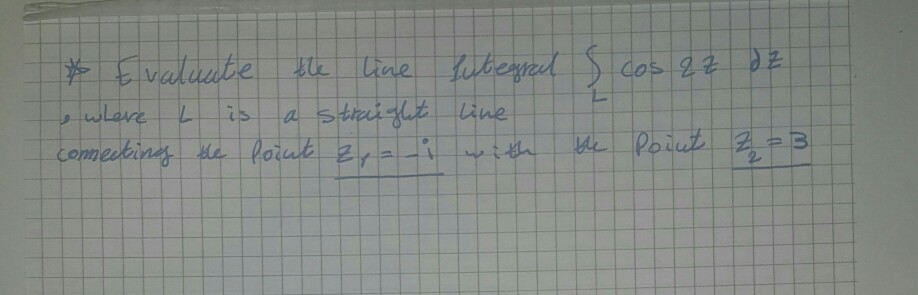 * Evaluate the line Integral ∫ cos 2z dz
L
, where L is a straight line
connecting the Point z₁ = -i with the Point z₂ = 3